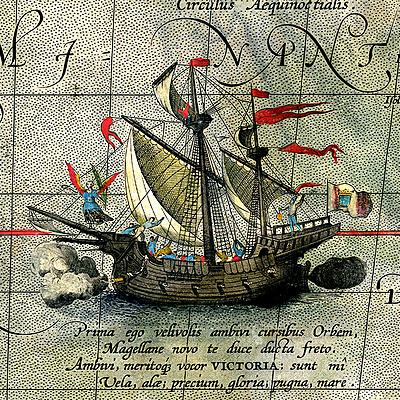 Circulus Aequinoctialis.
Prima ego velivolis ambivi cursibus Orbem,
Magellane novo te duce ducta freto.
Ambivi, meritoq; vocor VICTORIA: sunt mî
Vela, alæ; precium, gloria; pugna, mare.